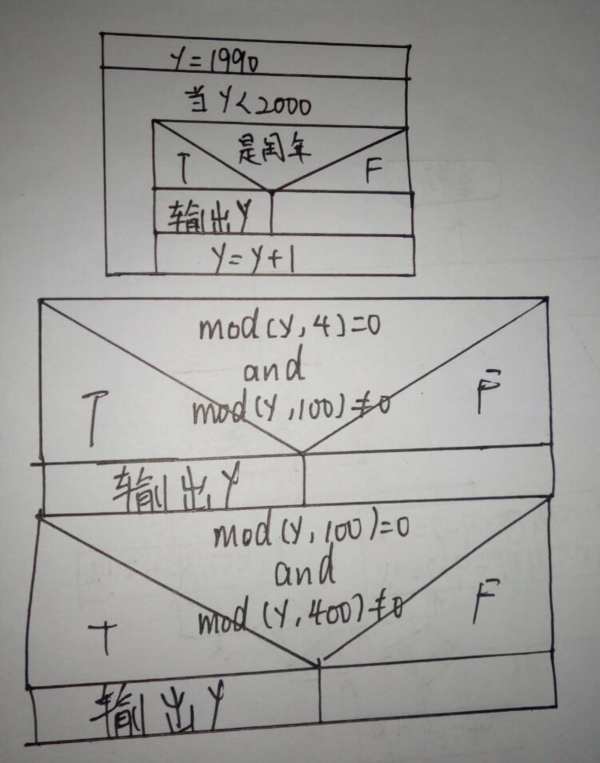 Y=1990
当Y<2000
是闰年
T
F
输出Y
Y=Y+1
mod(Y,4)=0
and
mod(Y,100)≠0
T
F
输出Y
mod(Y,100)=0
and
mod(Y,400)≠0
T
F
输出Y